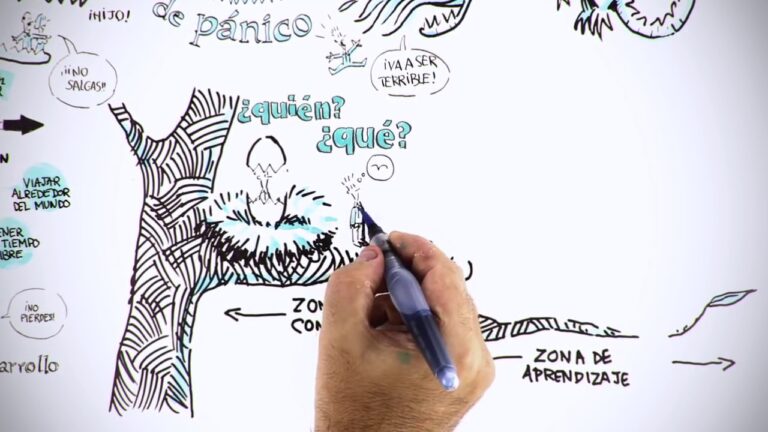 ¡HIJO!
de pánico
¡¡NO
SALGAS!!
¡VA A SER
TERRIBLE!
¿quién?
¿qué?
VIAJAR
ALREDEDOR
DEL MUNDO
TIEMPO
¡NO
PIERDES!
ZONA DE
APRENDIZAJE